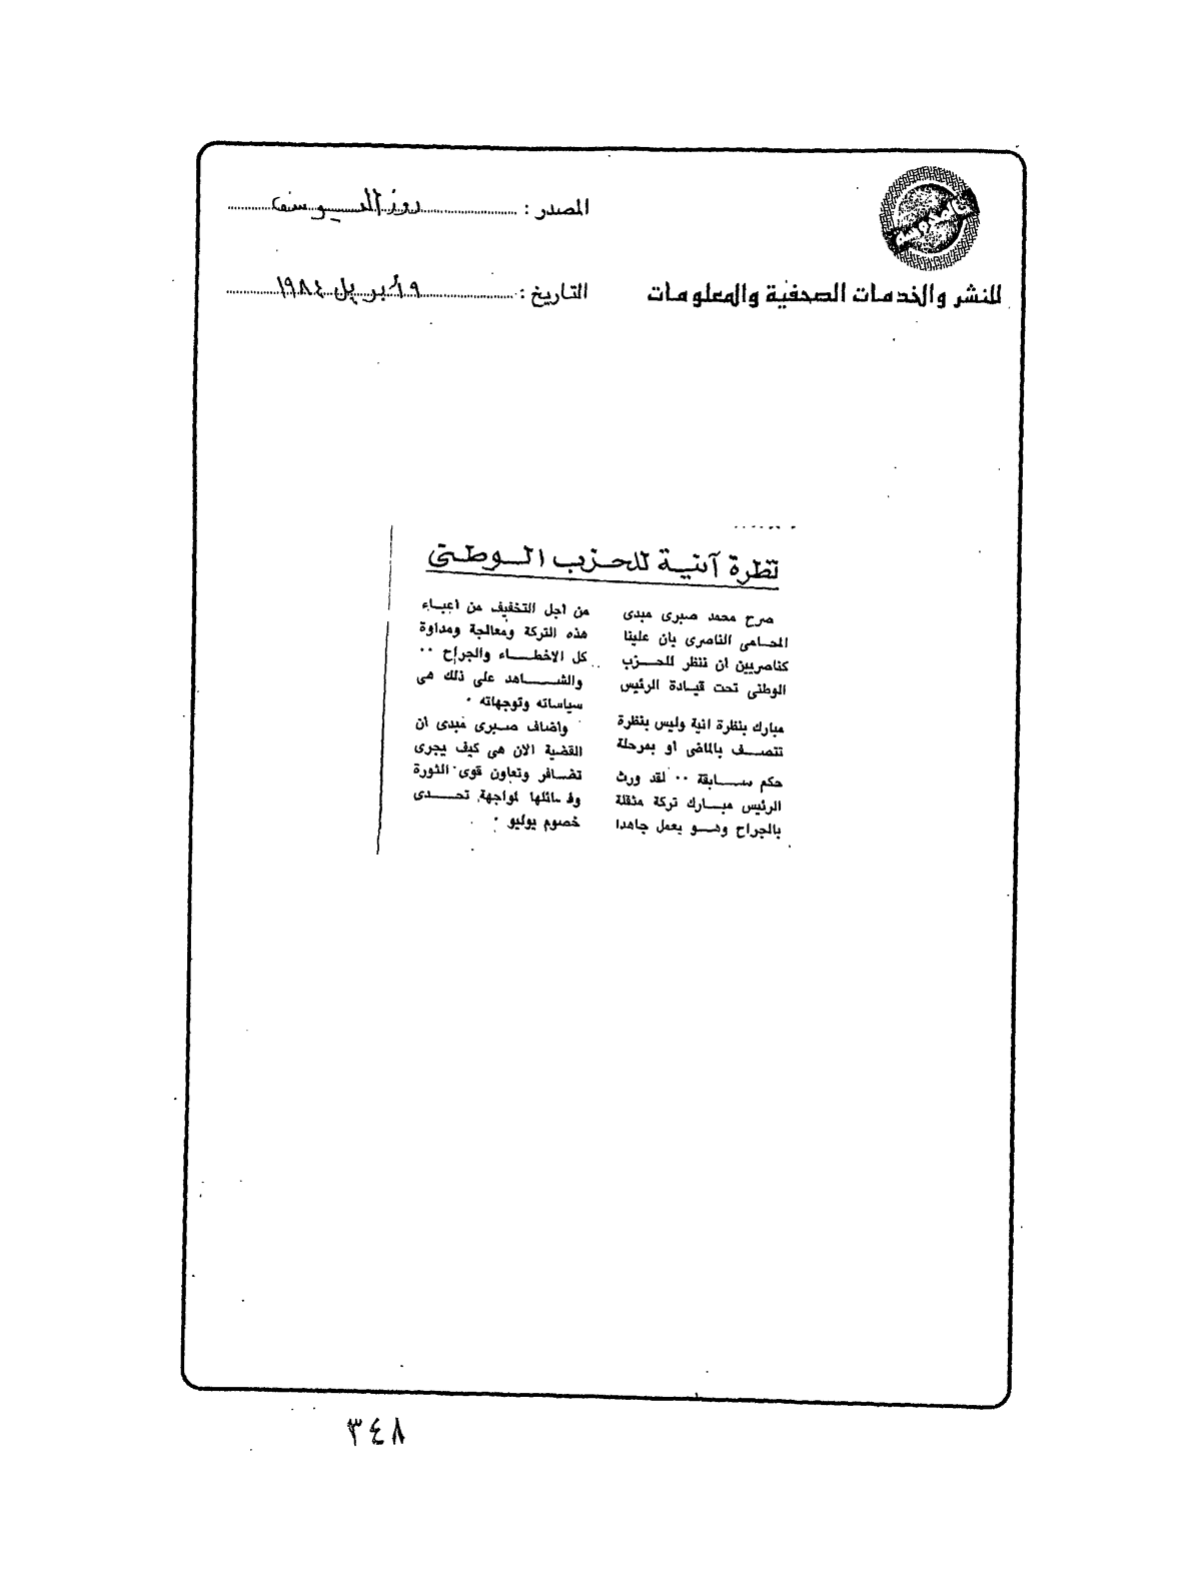 المصدر : روز اليوسف
التاريخ : ٩ أبريل ١٩٨٤
للنشر والخدمات الصحفية والمعلومات
نظرة آنية للحزب الوطنى
صرح محمد صبرى مبدى
المحامى الناصرى بان علينا
كناصريين ان ننظر للحزب
الوطنى تحت قيادة الرئيس
مبارك بنظرة انية وليس بنظرة
تتصف بالماضى او بمرحلة
حكم سابقة ٠٠ لقد ورث
الرئيس مبارك تركة مثقلة
بالجراح وهو يعمل جاهدا
من اجل التخفيف من اعباء
هذه التركة ومعالجة ومداوة
كل الاخطاء والجراح ٠٠
والشاهد على ذلك هى
سياساته وتوجهاته ٠
واضاف صبرى مبدى ان
القضية الان هى كيف يجرى
تضافر وتعاون قوى الثورة
وفصائلها لمواجهة تحدى
خصوم يوليو ٠
٣٤٨